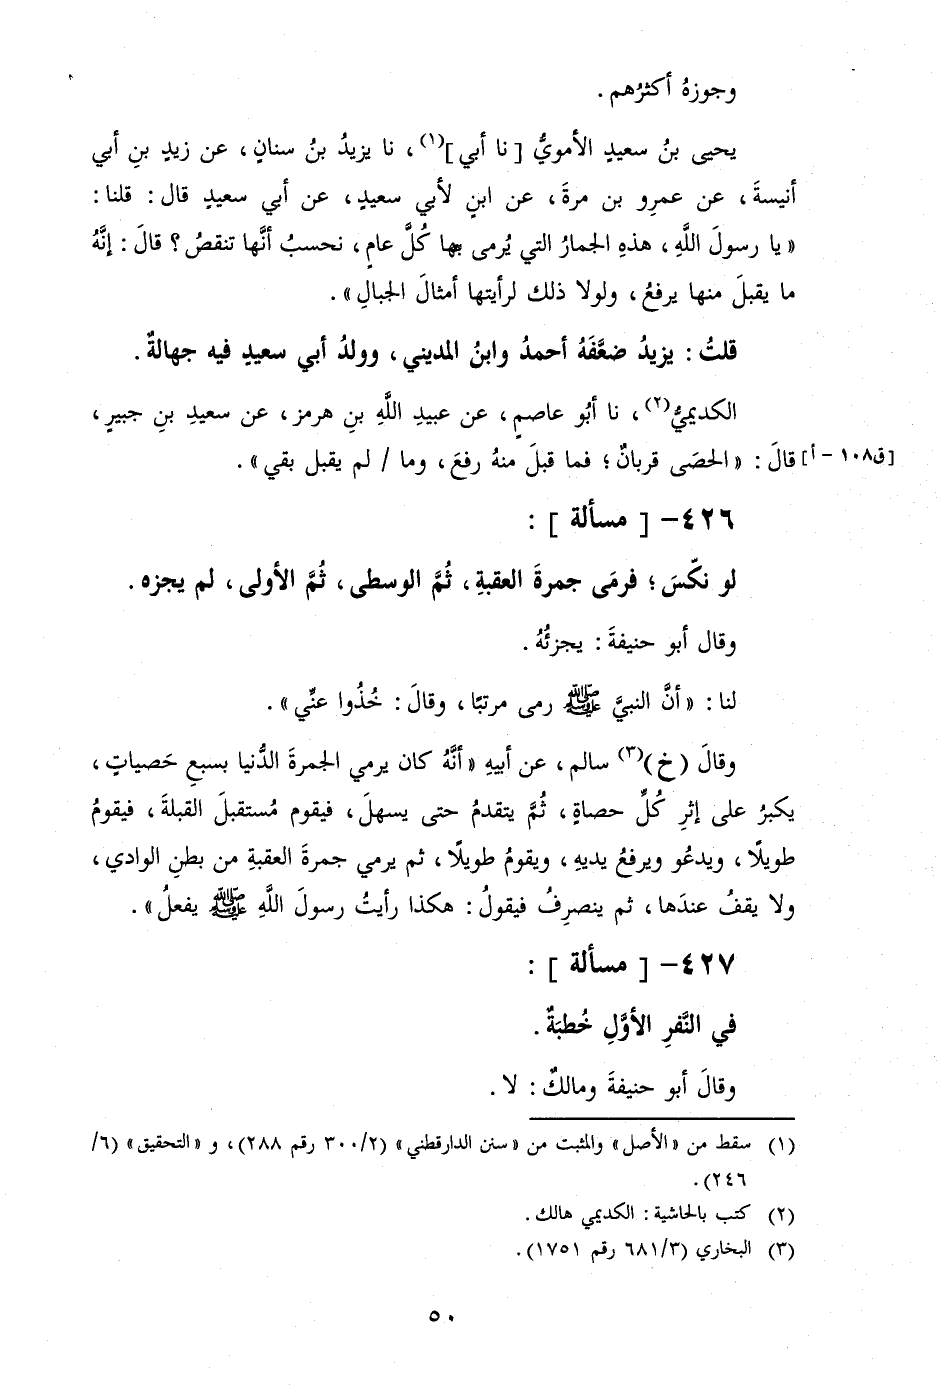 وجوزهُ أكثرُهم .
يحيى بنُ سعيدٍ الأمويُّ [ نا أبي ](١)، نا يزيدُ بنُ سنانٍ، عن زيدِ بنِ أبي
أنيسةَ، عن عمرِو بن مرةَ، عن ابنٍ لأبي سعيدٍ، عن أبي سعيدٍ قال : قلنا :
« يا رسولَ اللَّهِ، هذهِ الجمارُ التي يُرمى بها كُلَّ عامٍ، نحسبُ أنَّها تنقصُ؟ قالَ : إنَّهُ
ما يقبلَ منها يرفعُ، ولولا ذلك لرأيتها أمثالَ الجبالِ» .
قلتُ : يزيدُ ضعَّفَهُ أحمدُ وابنُ المديني، وولدُ أبي سعيدٍ فيه جهالةٌ .
الكديميُّ(٢)، نا أبُو عاصمٍ، عن عبيدِ اللَّهِ بنِ هرمز، عن سعيدِ بنِ جبيرٍ،
[ق١٠٨ - أ] قالَ : « الحصَى قربانٌ؛ فما قبلَ منهُ رفعَ، وما / لم يقبل بقي» .
٤٢٦- [ مسألة ] :
لو نكّسَ؛ فرمَى جمرةَ العقبةِ، ثُمَّ الوسطى، ثُمَّ الأولى، لم يجزه .
وقال أبو حنيفةَ : يجزئُهُ .
لنا : « أنَّ النبيَّ ﷺ رمى مرتبًا، وقالَ : خُذُوا عنِّي» .
وقالَ (خ)(٣) سالم، عن أبيهِ « أنَّهُ كان يرمي الجمرةَ الدُّنيا بسبعِ حَصياتٍ،
يكبرُ على إثرِ كُلِّ حصاةٍ، ثُمَّ يتقدمُ حتى يسهلَ، فيقوم مُستقبلَ القبلةَ، فيقومُ
طويلًا، ويدعُو ويرفعُ يديهِ، ويقومُ طويلًا، ثم يرمي جمرةَ العقبةِ من بطنِ الوادي،
ولا يقفُ عندَها، ثم ينصرِفُ فيقولُ : هكذا رأيتُ رسولَ اللَّهِ ﷺ يفعلُ» .
٤٢٧- [ مسألة ] :
في النَّفرِ الأوَّلِ خُطبَةٌ .
وقالَ أبو حنيفةَ ومالكٌ : لا .
(١) سقط من «الأصل» والمثبت من «سنن الدارقطني» (٣٠٠/٢ رقم ٢٨٨)، و «التحقيق» (٦/
٢٤٦) .
(٢) كتب بالحاشية : الكديمي هالك .
(٣) البخاري (٦٨١/٣ رقم ١٧٥١) .
٥٠